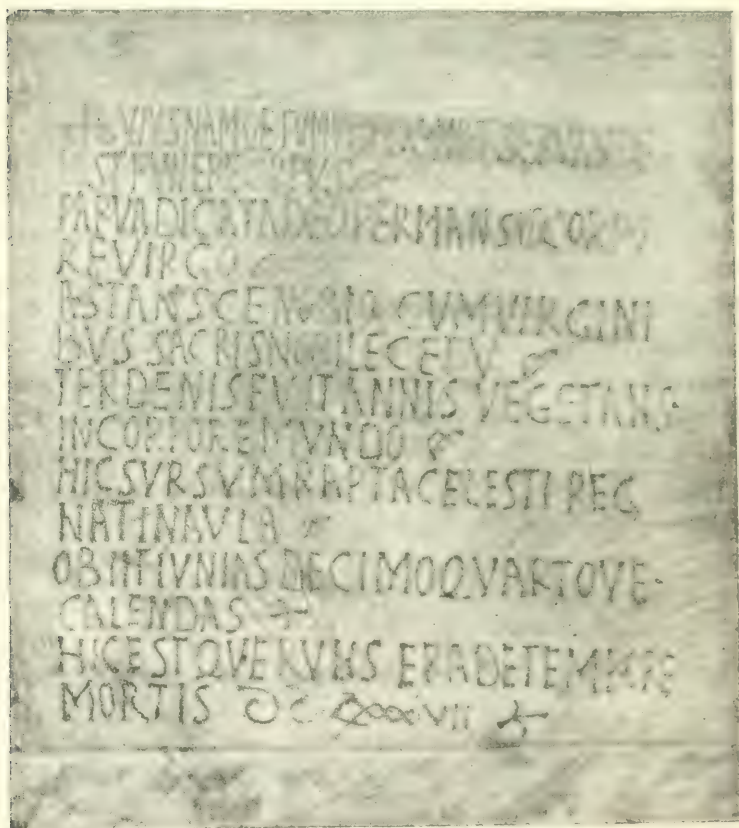 PARVA DICATA DEO PERMANSIT CORPO
RE VIRGO
ASTANS CENOBIO CVM VIRGINI
BVS SACRIS NOBILE CETV
TER DENIS FVIT ANNIS VEGETANS
IN CORPORE MVNDO
HIC SVRSVM RAPTA CELESTI REG
NAT IN AVLA
OBIIT IVNIAS DECIMO QVARTO VE
CALENDAS
HIC EST QVERVLIS ERA DE TEMPORE
MORTIS DC VII